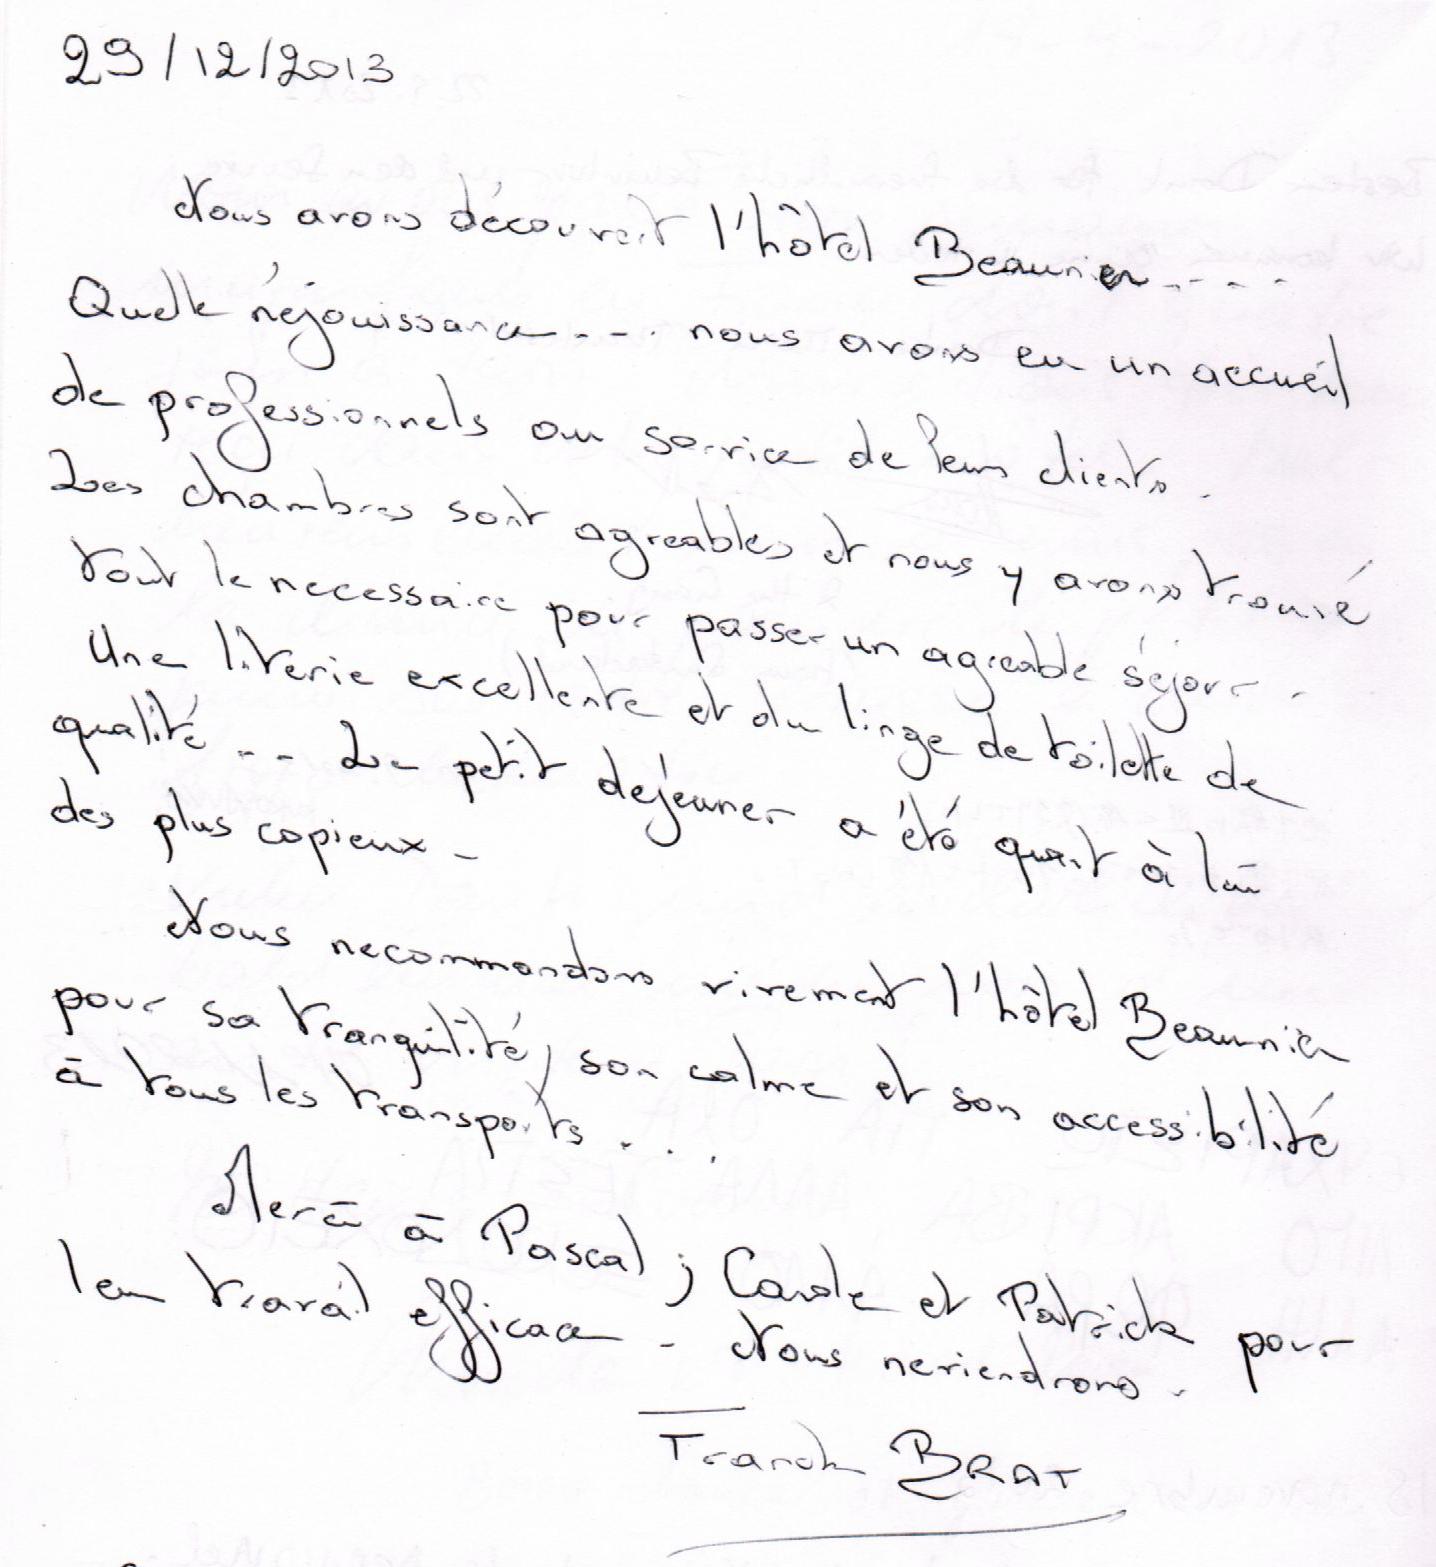 29/12/2013
Nous avons découvert l'hôtel Beaunier....
Quelle réjouissance.... nous avons eu un accueil
de professionnels au service de leurs clients.
Les chambres sont agreables et nous y avons trouvé
tout le necessaire pour passer un agreable séjour.
Une literie excellente et du linge de toilette de
qualité... Le petit dejeuner a été quant à lui
des plus copieux.
Nous recommandons vivement l'hôtel Beaunier
pour sa tranquilité, son calme et son accessibilité
à tous les transports...
Merci à Pascal, Carole et Patrick pour
leur travail efficace. Nous reviendrons.
Franck BRAT